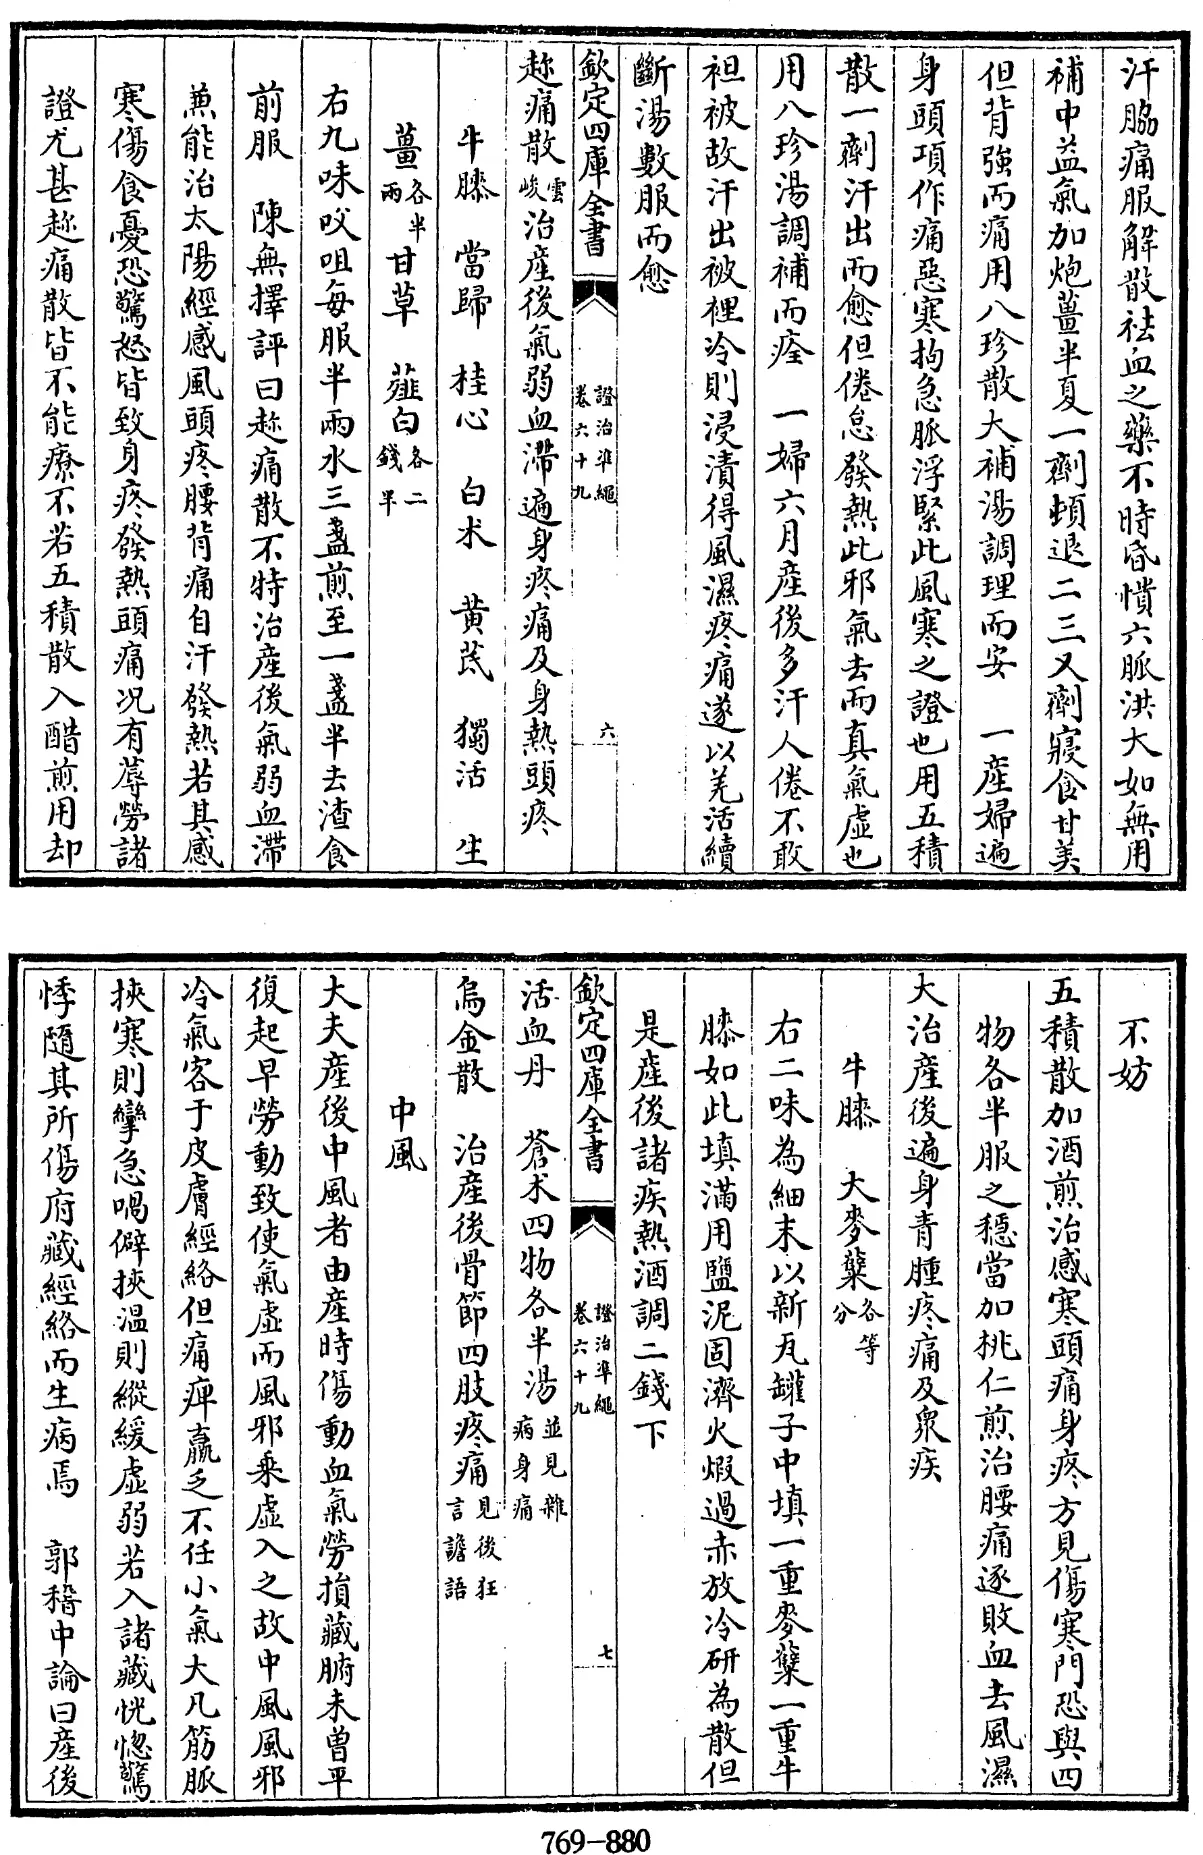 汗脇痛服解散祛血之藥不時昏憒六脈洪大如無用
補中益氣加炮薑半夏一劑頓退二三又劑寢食甘美
但背強而痛用八珍散大補湯調理而安　一産婦遍
身頭項作痛惡寒拘急脈浮緊此風寒之證也用五積
散一劑汗出而愈但倦怠發熱此邪氣去而真氣虛也
用八珍湯調補而痊　一婦六月産後多汗人倦不敢
袒被故汗出被裡冷則浸漬得風濕疼痛遂以羌活續
斷湯數服而愈
欽定四庫全書　證治準繩　卷六十九　六
趂痛散雲峻治産後氣弱血滯遍身疼痛及身熱頭疼
牛膝　當歸　桂心　白朮　黄芪　獨活　生
薑各半兩甘草　薤白各二錢半
右九味㕮咀每服半兩水三盞煎至一盞半去渣食
前服　陳無擇評曰趂痛散不特治産後氣弱血滯
兼能治太陽經感風頭疼腰背痛自汗發熱若其感
寒傷食憂恐驚怒皆致身疼發熱頭痛况有蓐勞諸
證尤甚趂痛散皆不能療不若五積散入醋煎用却
不妨
五積散加酒煎治感寒頭痛身疼方見傷寒門恐與四
物各半服之穩當加桃仁煎治腰痛逐敗血去風濕
大治産後遍身青腫疼痛及衆疾
牛膝　大麥糵各等分
右二味為細末以新瓦罐子中填一重麥糵一重牛
膝如此填滿用鹽泥固濟火煆過赤放冷研為散但
是産後諸疾熱酒調二錢下
欽定四庫全書　證治準繩　卷六十九　七
活血丹　蒼朮四物各半湯並見雜病身痛
烏金散　治産後骨節四肢疼痛見後狂言譫語
中風
大夫産後中風者由産時傷動血氣勞損藏腑未曾平
復起早勞動致使氣虛而風邪乘虛入之故中風風邪
冷氣客于皮膚經絡但痛痺羸乏不任小氣大凡筋脈
挾寒則攣急喎僻挾温則縱緩虛弱若入諸藏恍惚驚
悸隨其所傷府藏經絡而生病焉　郭稽中論曰産後
769-880